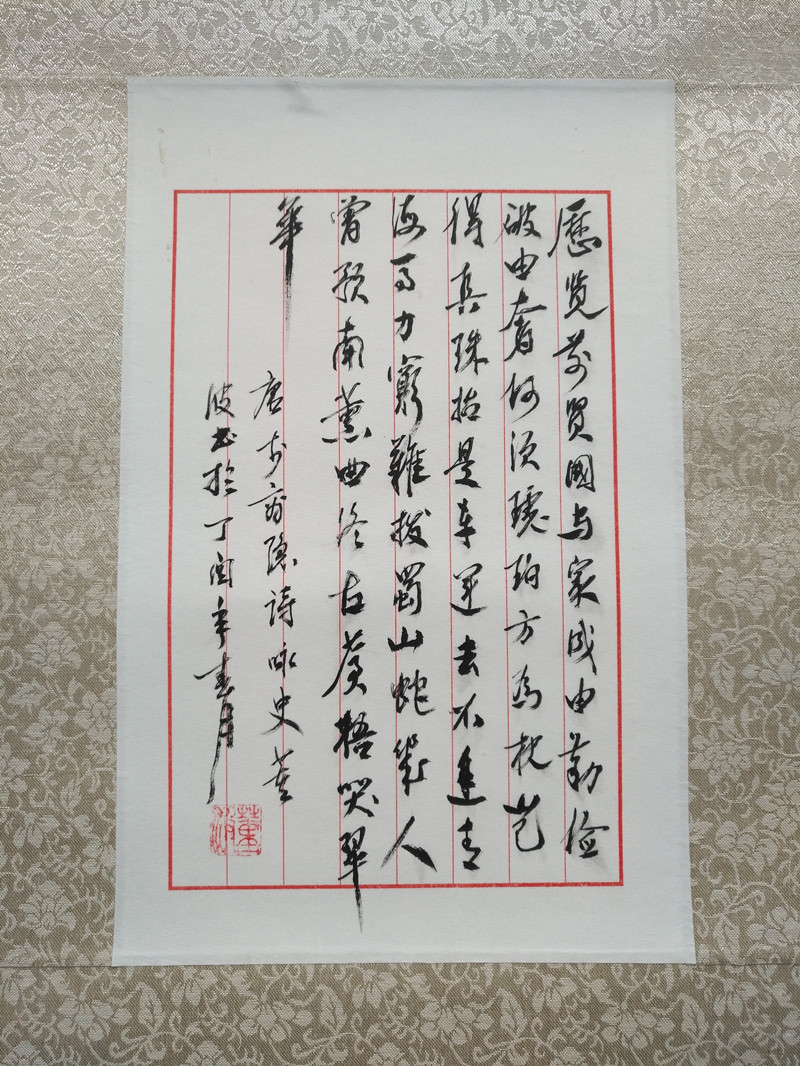 歷览前贤國与家成由勤俭
破由奢何须琥珀方为枕岂
得真珠始是车運去不逢青
海马力窮難拔蜀山蛇幾人
曾预南薰曲终古苍梧哭翠
華
唐李商隐詩咏史董
波书於丁酉年春月
董波